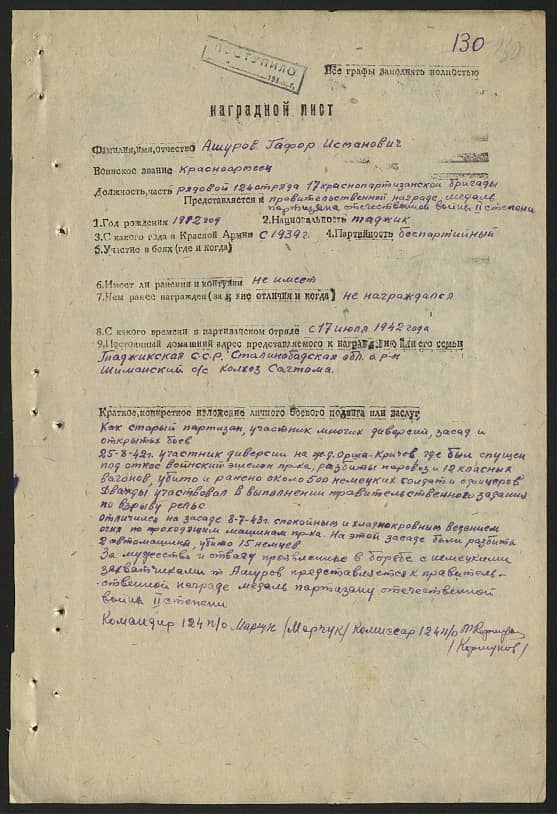 130 130
ПОСТУПИЛО
Все графы заполнять полностью
наградной лист
Фамилия,имя,отчество Ашуров Гафор Исманович
Воинское звание Красноармеец
Должность,часть рядовой 124 отряда 17 краснопартизанской бригады
Представляется к правительственной награде медаль
партизана отечественной войны II степени
1.Год рождения 1912 год 2.Национальность таджик
3.С какого года в Красной Армии с 1939г. 4.Партийность беспартийный
5.Участие в боях (где и когда)
6.Имеет ли ранения и контузии не имеет
7.Чем ранее награжден (за какие отличия и когда) не награждался
8.С какого времени в партизанском отряде с 17 июля 1942 года
9.Постоянный домашний адрес представляемого к награждению и его семьи
Таджикская С.С.Р. Сталинобадская обл. а р-к
Шиманский с/с Колхоз Сахтома.
Краткое,конкретное изложение личного боевого подвига или заслуг
Как старый партизан, участник многих диверсий, засад и
открытых боев
25-8-42г. участник диверсии на ж.д. Орша-Кричев, где был спущен
под откос воинский эшелон пр-ка, разбиты паровоз и 12 класных
вагонов, убито и ранено около 500 немецких солдат и офицеров
Дважды участвовал в выполнении правительственного задания
по взрыву рельс
Отличился на засаде 8-7-43г. спокойным и хладнокровным ведением
огня по проходящим машинам пр-ка. На этой засаде были разбиты
2 автомашины, убито 15 немцев
За мужество и отвагу проявленые в борьбе с немецкими
захватчиками т Ашуров представляется к правитель-
-ственной награде медаль партизану отечественной
войны II степени
Командир 124 п/о Марчук /Марчук/ Комиссар 124 п/о
/Коршунов/